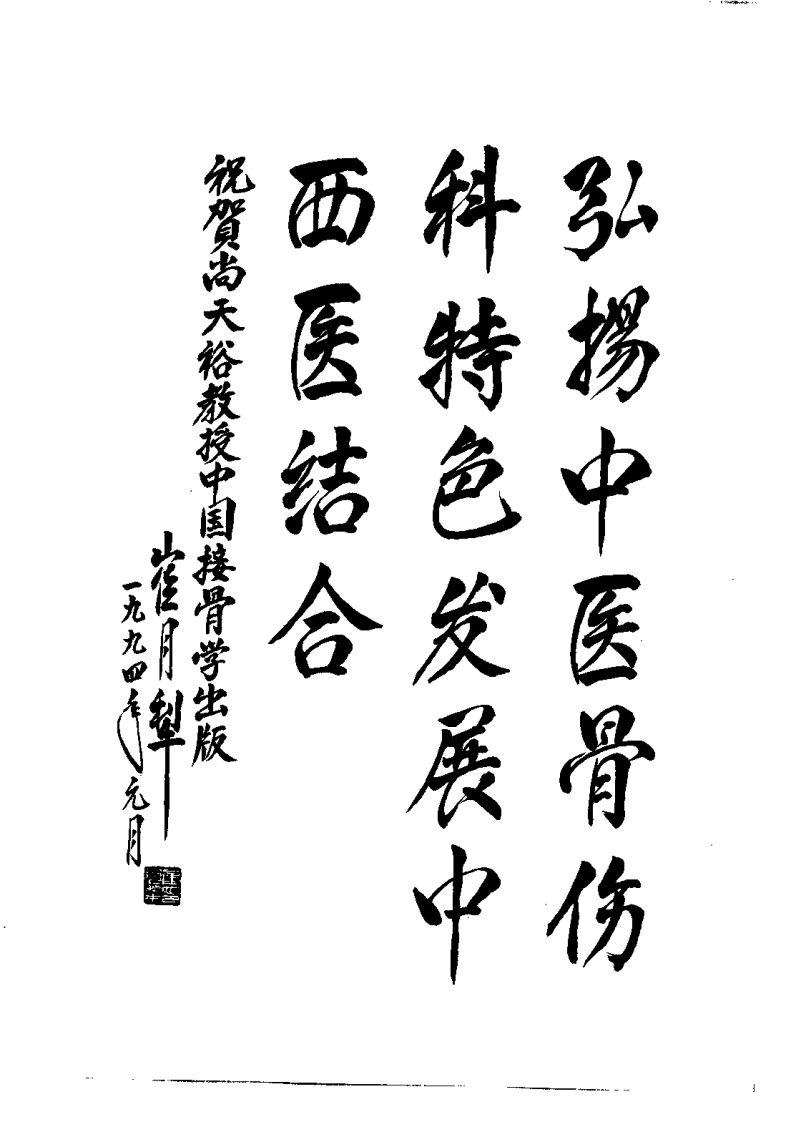 弘揚中医骨伤
科特色发展中
西医结合
祝賀尚天裕教授中国接骨学出版
崔月犁
一九九四年元月